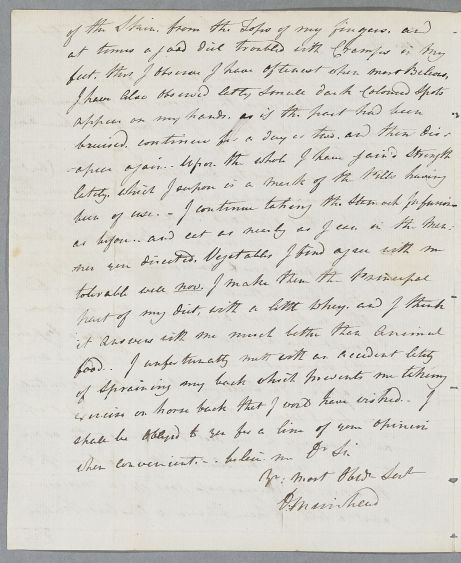 of the Skin, from the Tops of my fingers, and
at times a good deil troubled with Cramps in my
feet, this I observe I have oftenest when most Bilious,
I have also observed lately Small dark Coloured Spots
appear on my hands, as if the part had been
bruised, continue for a day or two, and then dis-
-apear again. Upon the whole I have gain'd Strength
lately, which I supon is a mark of the Pills having
been of use. - I continue taking the Stomach Infusion
as before, and eat as nearly as I can in the Man-
ner you directed, Vegetables I find agree with me
tolerable well now, I make them the Principal
part of my diet, with a little Whey, and I think
it answers with me much better than Animal
food. I unfortunatly mett with an accident lately
of Spraining my back which prevents me taking
exercise on horse back that I wo'd have wished. I
shall be obliged to you for a line of your opinion
when convenient. - believe me Dr Sir
Yr: most Obedt Servt
Muirhead